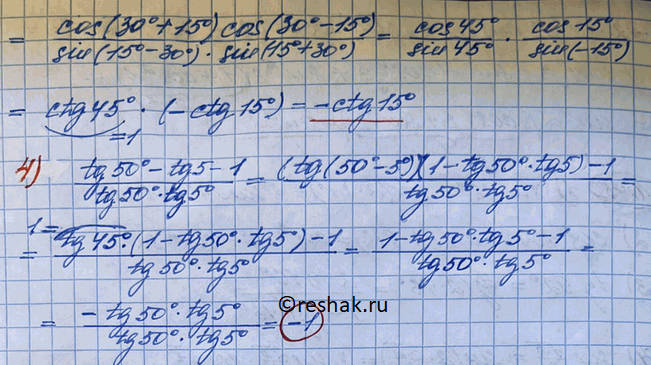 = cos(30°+15°)cos(30°-15°) / sin(15°-30°)·sin(15°+30°) = cos45° / sin45° · cos15° / sin(-15°)
= ctg45°·(-ctg15°) = -ctg15°
=1
4) tg50°-tg5-1 / tg50°·tg5° = (tg(50°-5°)(1-tg50°·tg5)-1 / tg50°·tg5° =
1=
= tg45°·(1-tg50°·tg5)-1 / tg50°·tg5° = 1-tg50°·tg5°-1 / tg50°·tg5° =
= -tg50°·tg5° / tg50°·tg5° = -1
©reshak.ru